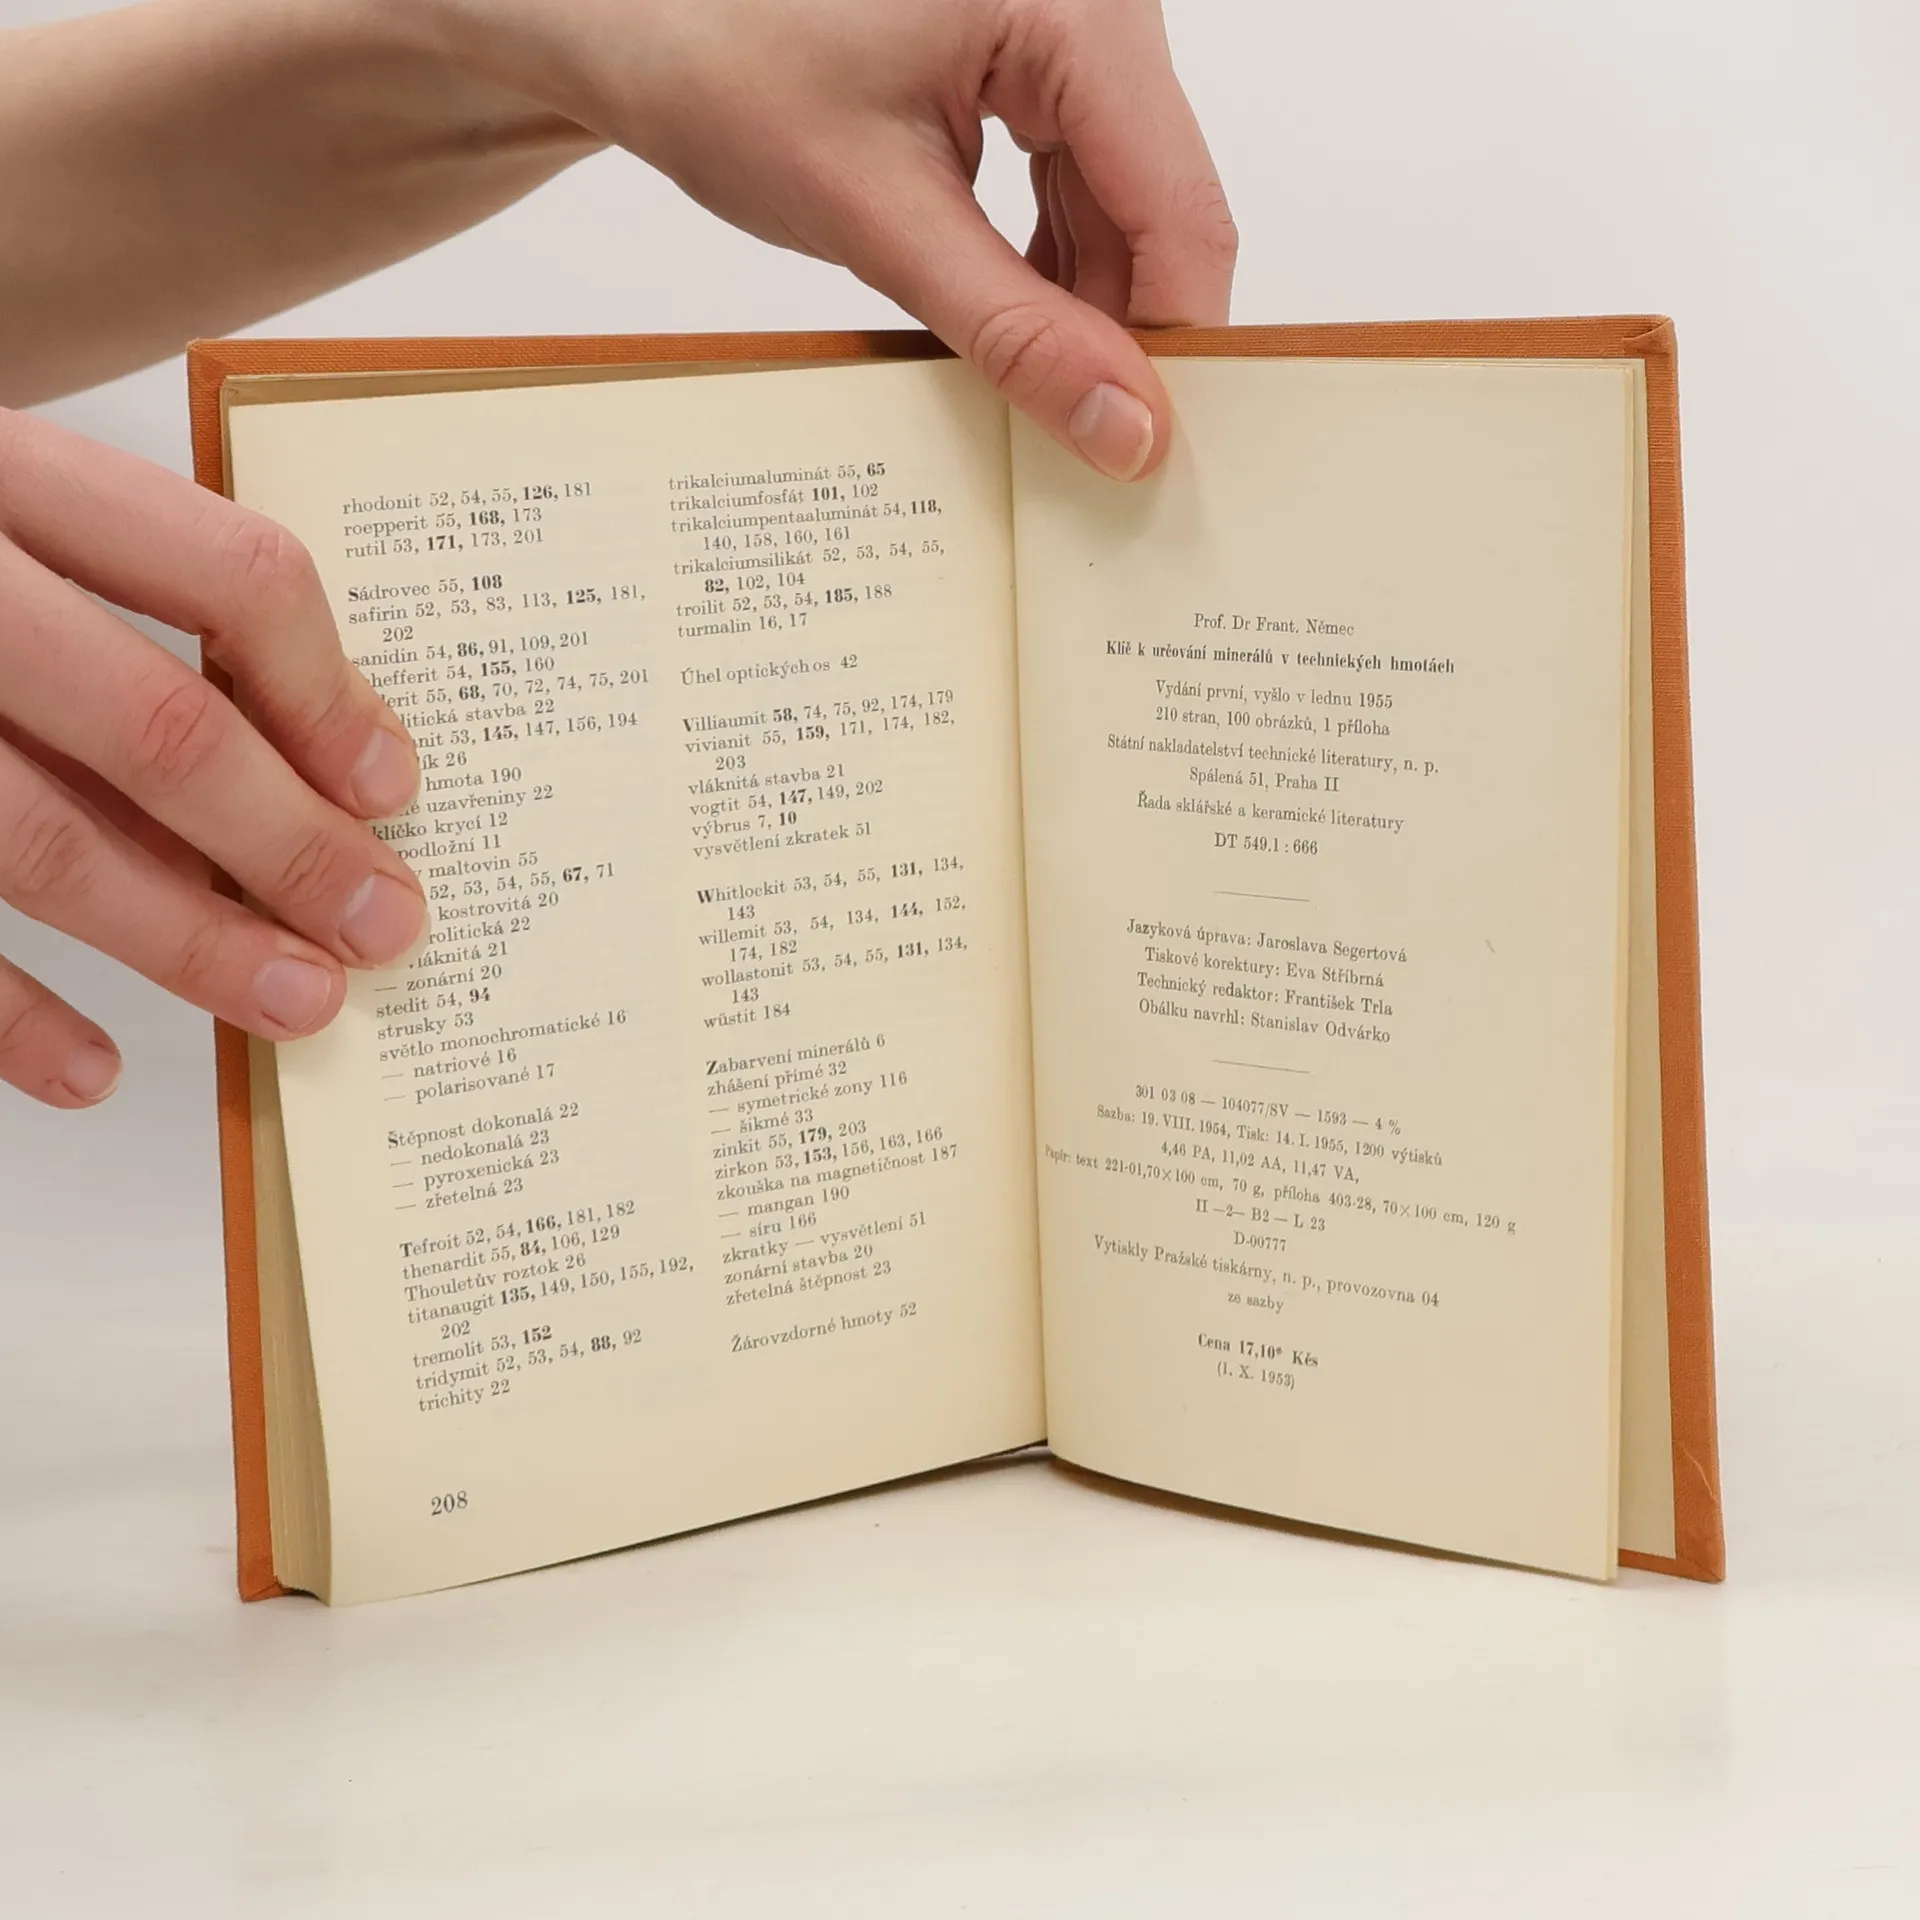 rhodonit 52, 54, 55, 126, 181
roepperit 55, 168, 173
rutil 53, 171, 173, 201
Sádrovec 55, 108
safirin 52, 53, 83, 113, 125, 181,
202
sanidin 54, 86, 91, 109, 201
54, 155, 160
55, 68, 70, 72, 74, 75, 201
stavba 22
53, 145, 147, 156, 194
26
hmota 190
uzavřeniny 22
krycí 12
podložní 11
maltovin 55
52, 53, 54, 55, 67, 71
kostrovitá 20
22
21
— zonární 20
stedit 54, 94
strusky 53
světlo monochromatické 16
— natriové 16
— polarisované 17
Štěpnost dokonalá 22
— nedokonalá 23
— pyroxenická 23
— zřetelná 23
Tefroit 52, 54, 166, 181, 182
thenardit 55, 84, 106, 129
Thouletův roztok 26
titanaugit 135, 149, 150, 155, 192,
202
tremolit 53, 152
tridymit 52, 53, 54, 88, 92
trichity 22
208
trikalciumaluminát 55, 65
trikalciumfosfát 101, 102
trikalciumpentaaluminát 54, 118,
140, 158, 160, 161
trikalciumsilikát 52, 53, 54, 55,
82, 102, 104
troilit 52, 53, 54, 185, 188
turmalin 16, 17
Úhel optických os 42
Villiaumit 58, 74, 75, 92, 174, 179
vivianit 55, 159, 171, 174, 182,
203
vláknitá stavba 21
vogtit 54, 147, 149, 202
výbrus 7, 10
vysvětlení zkratek 51
Whitlockit 53, 54, 55, 131, 134,
143
willemit 53, 54, 134, 144, 152,
174, 182
wollastonit 53, 54, 55, 131, 134,
143
wüstit 184
Zabarvení minerálů 6
zhášení přímé 32
— symetrické zony 116
— šikmé 33
zinkit 55, 179, 203
zirkon 53, 153, 156, 163, 166
zkouška na magnetičnost 187
— mangan 190
— síru 166
zkratky — vysvětlení 51
zonární stavba 20
zřetelná štěpnost 23
Žárovzdorné hmoty 52
Prof. Dr Frant. Němec
Klíč k určování minerálů v technických hmotách
Vydání první, vyšlo v lednu 1955
210 stran, 100 obrázků, 1 příloha
Státní nakladatelství technické literatury, n. p.
Spálená 51, Praha II
Řada sklářské a keramické literatury
DT 549.1 : 666
Jazyková úprava: Jaroslava Segertová
Tiskové korektury: Eva Stříbrná
Technický redaktor: František Trla
Obálku navrhl: Stanislav Odvárko
301 03 08 — 104077/SV — 1593 — 4 %
Sazba: 19. VIII. 1954, Tisk: 14. I. 1955, 1200 výtisků
4,46 PA, 11,02 AA, 11,47 VA,
Papír: text 221-01,70×100 cm, 70 g, příloha 403-28, 70×100 cm, 120 g
II —2— B2 — L 23
D-00777
Vytiskly Pražské tiskárny, n. p., provozovna 04
ze sazby
Cena 17,10* Kčs
(1. X. 1953)